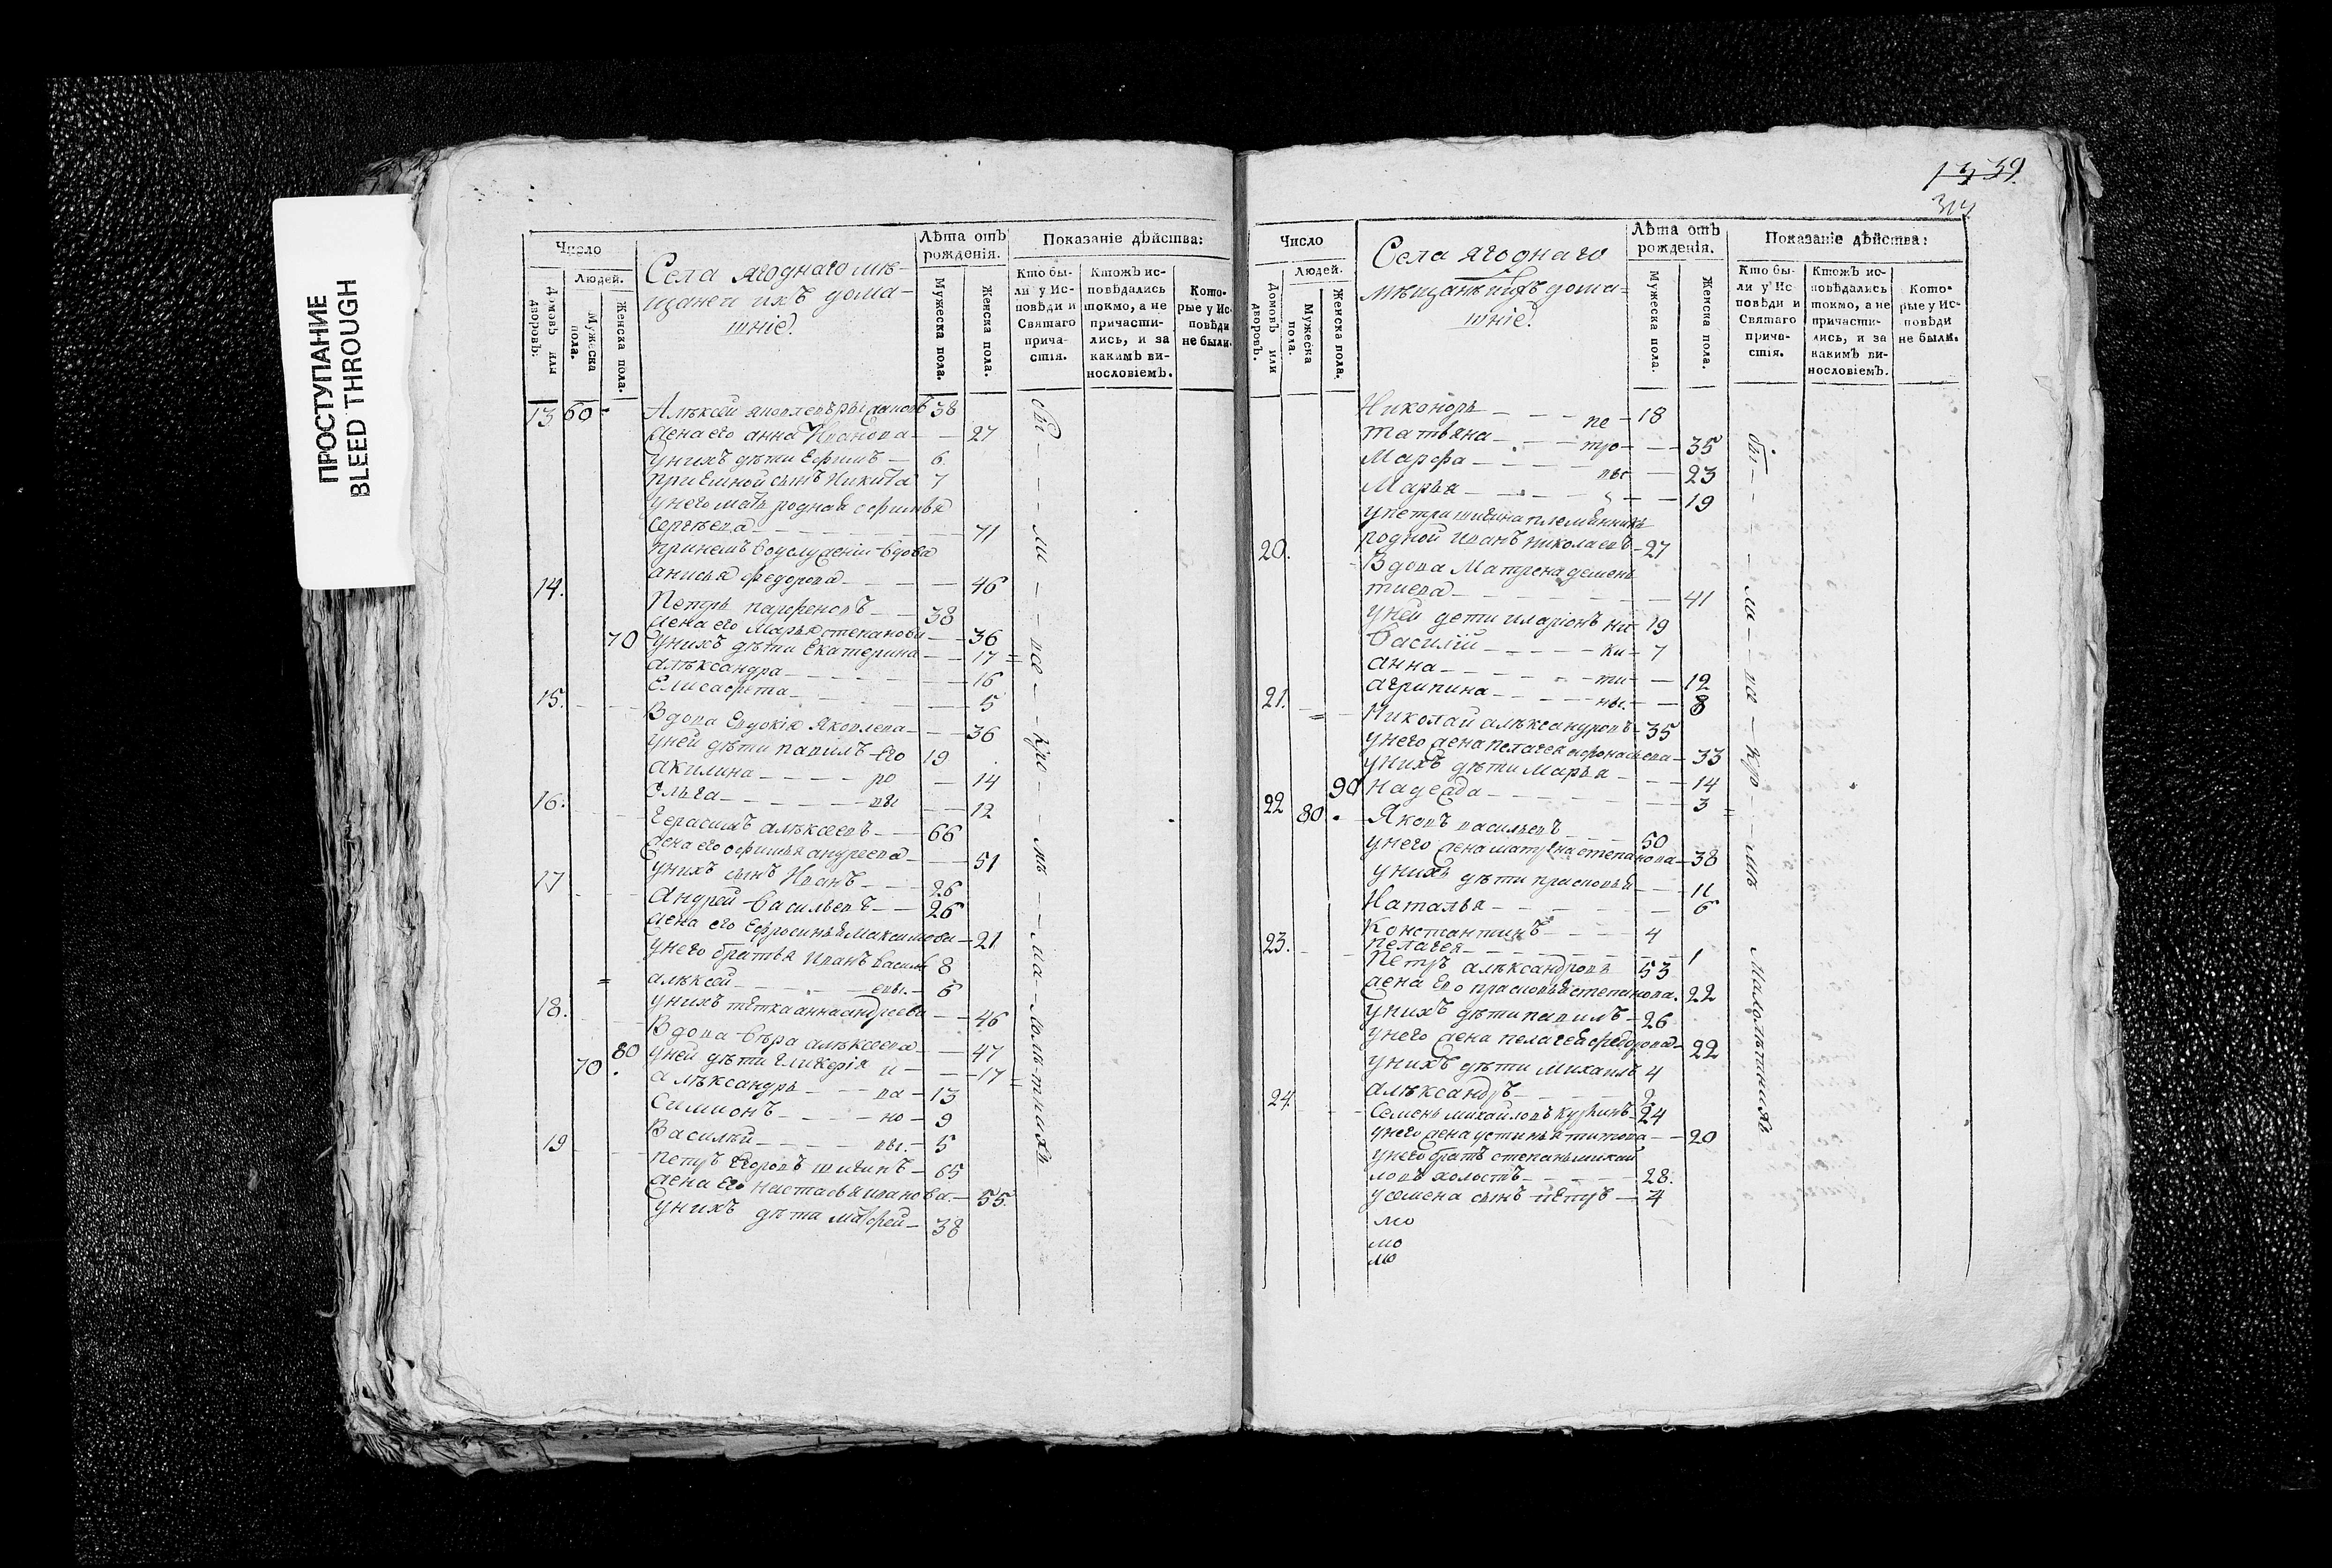 ПРОСТУПАНИЕ
BLEED THROUGH
Число
Людей.
Домовъ или дворовъ.
Мужеска пола.
Женска пола.
Села ягоднаго мѣ-
щане и ихъ дома-
шніе.
Лѣта отъ рожденія.
Мужеска пола.
Женска пола.
Показаніе дѣйства:
Кто бы-
ли у Ис-
повѣди и
Святаго
прича-
стія.
Ктожъ ис-
повѣдались
токмо, а не
причасти-
лись, и за
какимъ ви-
нословіемъ.
Кото-
рые у Ис-
повѣди
не были.
13 60 Алѣксей яковлевъ 38
жена его анна Иванова 27
у нихъ дѣти Ефимъ 6
приемной сынъ Никита 7
у него мать родная офимья
сергѣева 71
вдова
анисья федорова 46
14. Петръ парфеновъ 38
жена его Марья степанова 36
70 у нихъ дѣти Екатерина 17
алѣксандра 16
Елисафета 5
15. Вдова Евдокія Яковлева 36
у ней дѣти павилъ Его 19
акилина ро 14
Ольга вы 12
16. Герасимъ алѣксеевъ 66
жена его офимья андреева 51
у нихъ сынъ Иванъ 26
17 Андрей васильевъ 26
жена его Ефросинья Максимова 21
у него братья Иванъ василь 8
алѣксей евы. 6
у нихъ тѣтка анна андреева 46
18. Вдова вѣра алѣксеева 47
80 у ней дѣти гликерія и 17
70 алѣксандръ ва 13
Симионъ но 9
Василѣй вы. 5
19 петръ Егоровъ шигинъ 65
жена его настасья иванова 55.
у нихъ дѣти матфей 38
бы ли все кро мѣ ма лолѣтнихъ
1339
314
Число
Людей.
Домовъ или дворовъ.
Мужеска пола.
Женска пола.
Села ягоднаго
мѣщанъ ихъ дома-
шніе.
Лѣта отъ рожденія.
Мужеска пола.
Женска пола.
Показаніе дѣйства:
Кто бы-
ли у Ис-
повѣди и
Святаго
прича-
стія.
Ктожъ ис-
повѣдались
токмо, а не
причасти-
лись, и за
какимъ ви-
нословіемъ.
Кото-
рые у Ис-
повѣди
не были.
Никоноръ пе 18
татьяна тро 35
Марфа вы 23
Марья 19
у петра шигина племянникъ
родной иванъ николаевъ 27
20. Вдова Матрена демень
тиева 41
у ней дети иларіонъ ни 19
василій ки 7
анна ти 12
агрипина вы. 8
21. Николай алѣксандровъ 35
у него жена пелагея афонасьева 33
у нихъ дѣти Марья 14
90 надежда 3
22 80. Яковъ васильевъ 50
у него жена матрена степанова 38
у нихъ дѣти прасковья 11
Наталья 6
Константинъ 4
пелагея 1
23. Петръ алѣксандровъ 53
жена Его прасковья степанова. 22
у нихъ дѣти павилъ 26
у него жена пелагея федорова 22
у нихъ дѣти Михаилъ 4
алѣксандръ 2
24. Семенъ михайловъ 24
у него жена устинья титова 20
у него братъ степанъ михай
ловъ холостъ 28.
у семена сынъ петръ 4
мо
мо
мо
бы ли все кро мѣ малолѣтнихъ